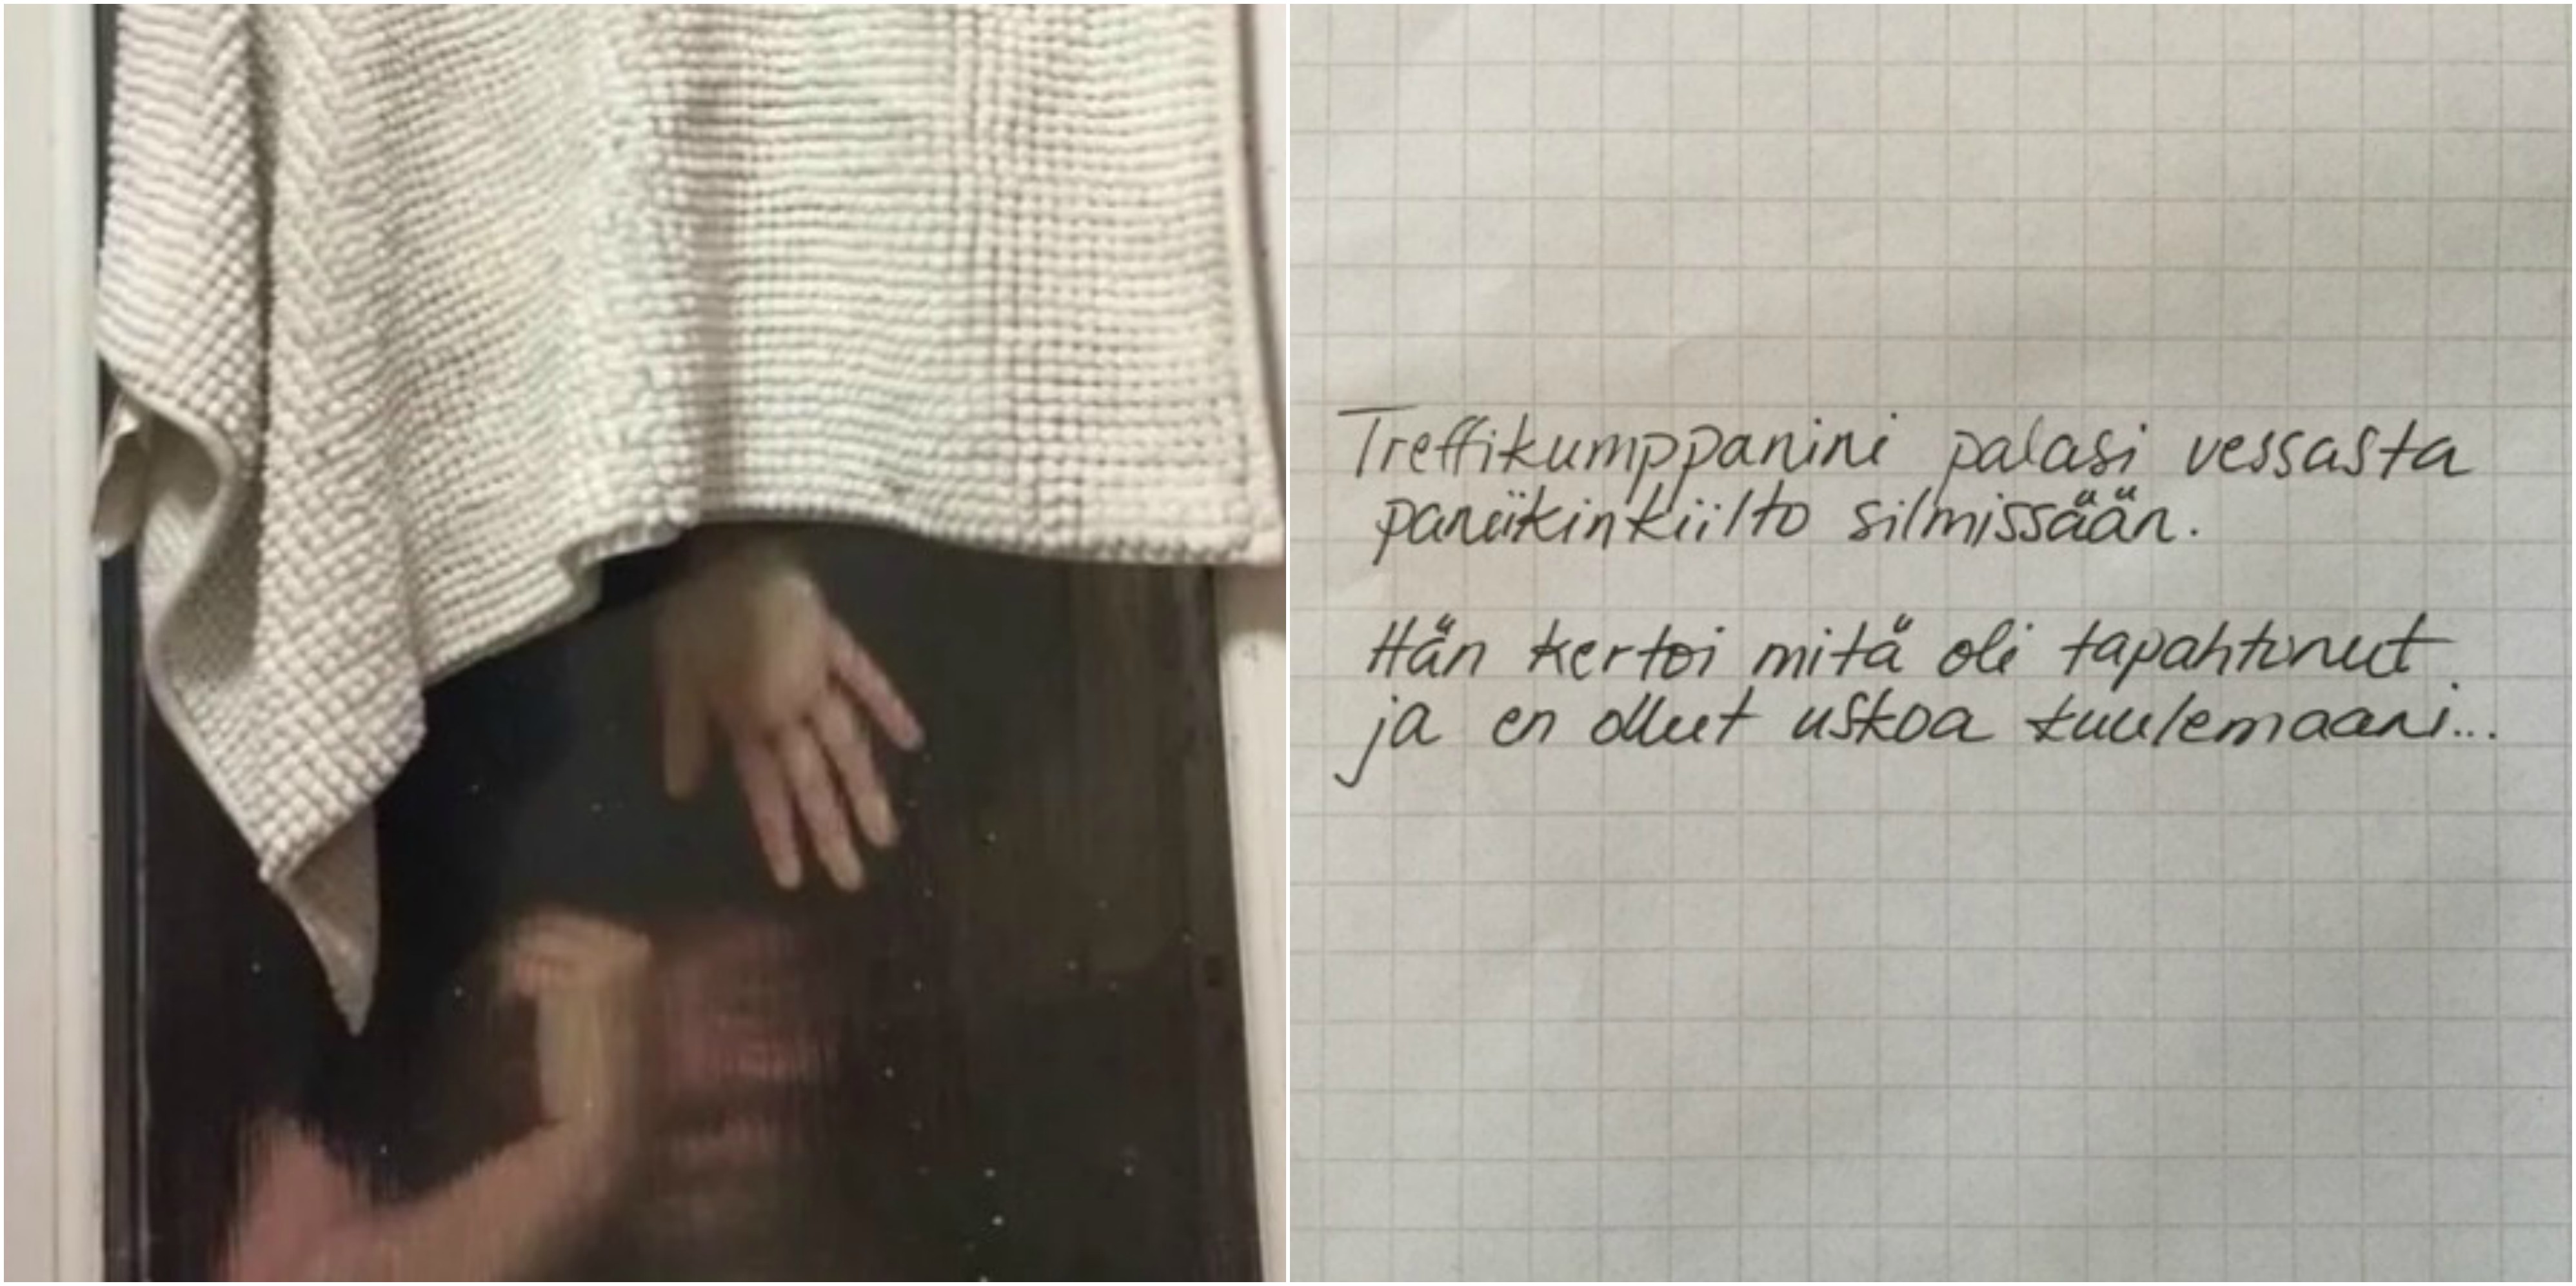 Treffikumppanini palasi vessasta
paniikinkiilto silmissään.
Hän kertoi mitä oli tapahtunut
ja en ollut uskoa kuulemaani...